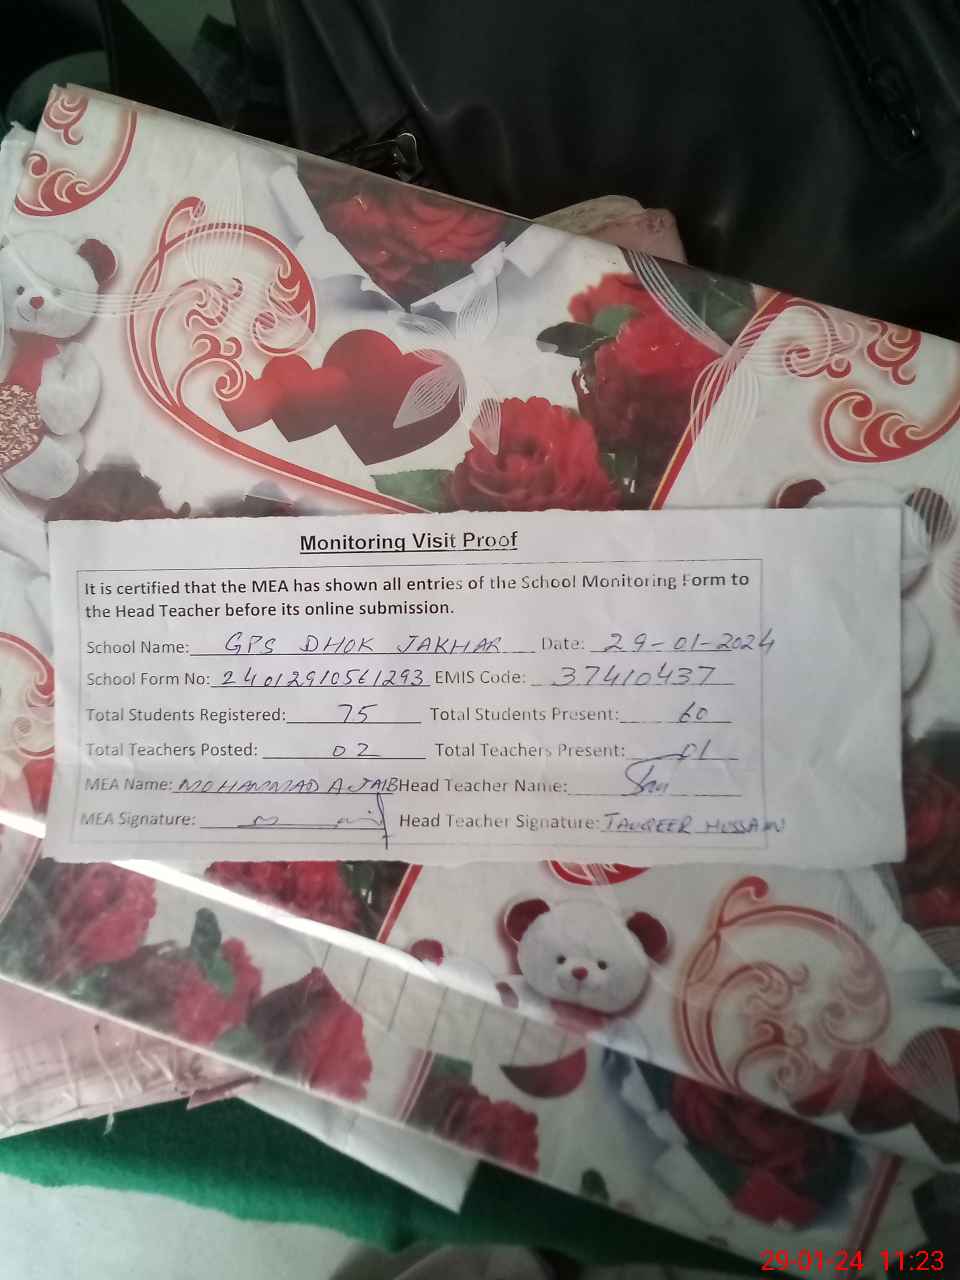 Monitoring Visit Proof
It is certified that the MEA has shown all entries of the School Monitoring Form to
the Head Teacher before its online submission.
School Name: GPS DHOK JAKHAR Date: 29-01-2024
School Form No: 24012910561293 EMIS Code: 37410437
Total Students Registered: 75 Total Students Present: 60
Total Teachers Posted: 02 Total Teachers Present: 01
MEA Name: MOHAMMAD AJAIB Head Teacher Name:
MEA Signature: Head Teacher Signature: TAUQEER HUSSAIN
29-01-24 11:23